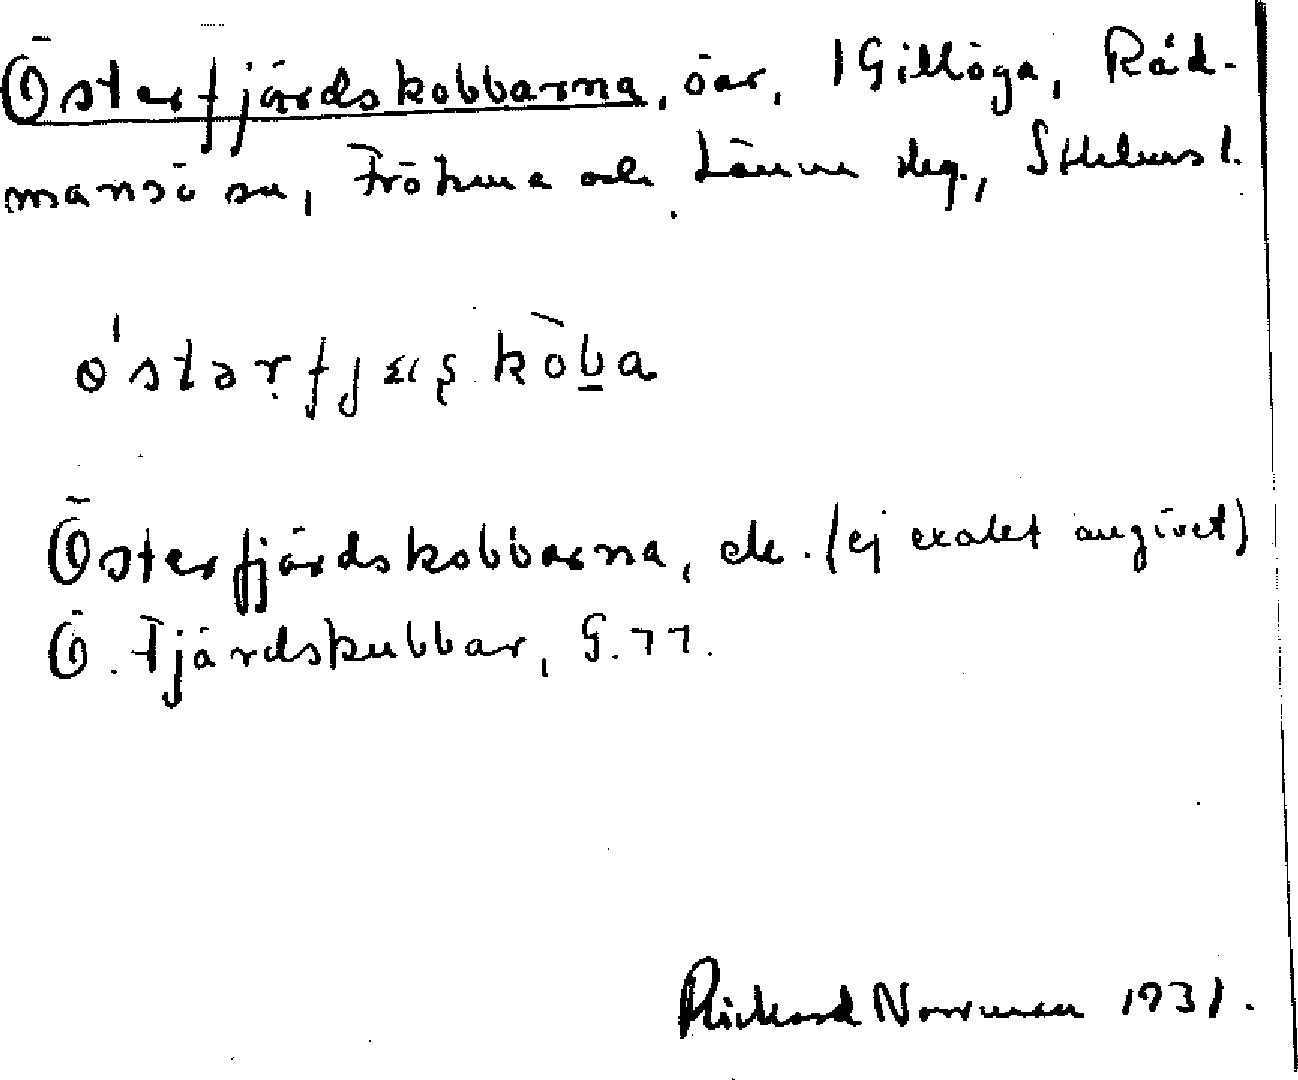 Österfjärdskobbarna, öar, i Gillöga, Råd-
mansö sn, Frötuna och Länna skg., Sthlms l.
ǿstərfjæṣkòb̠a
Österfjärdskobbarna, ek. (ej exakt angivet)
Ö. Fjärdskubbar, G. 77.
Rickard Norrman 1931.